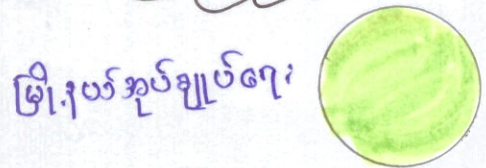 မြို့နယ်အုပ်ချုပ်ရေး